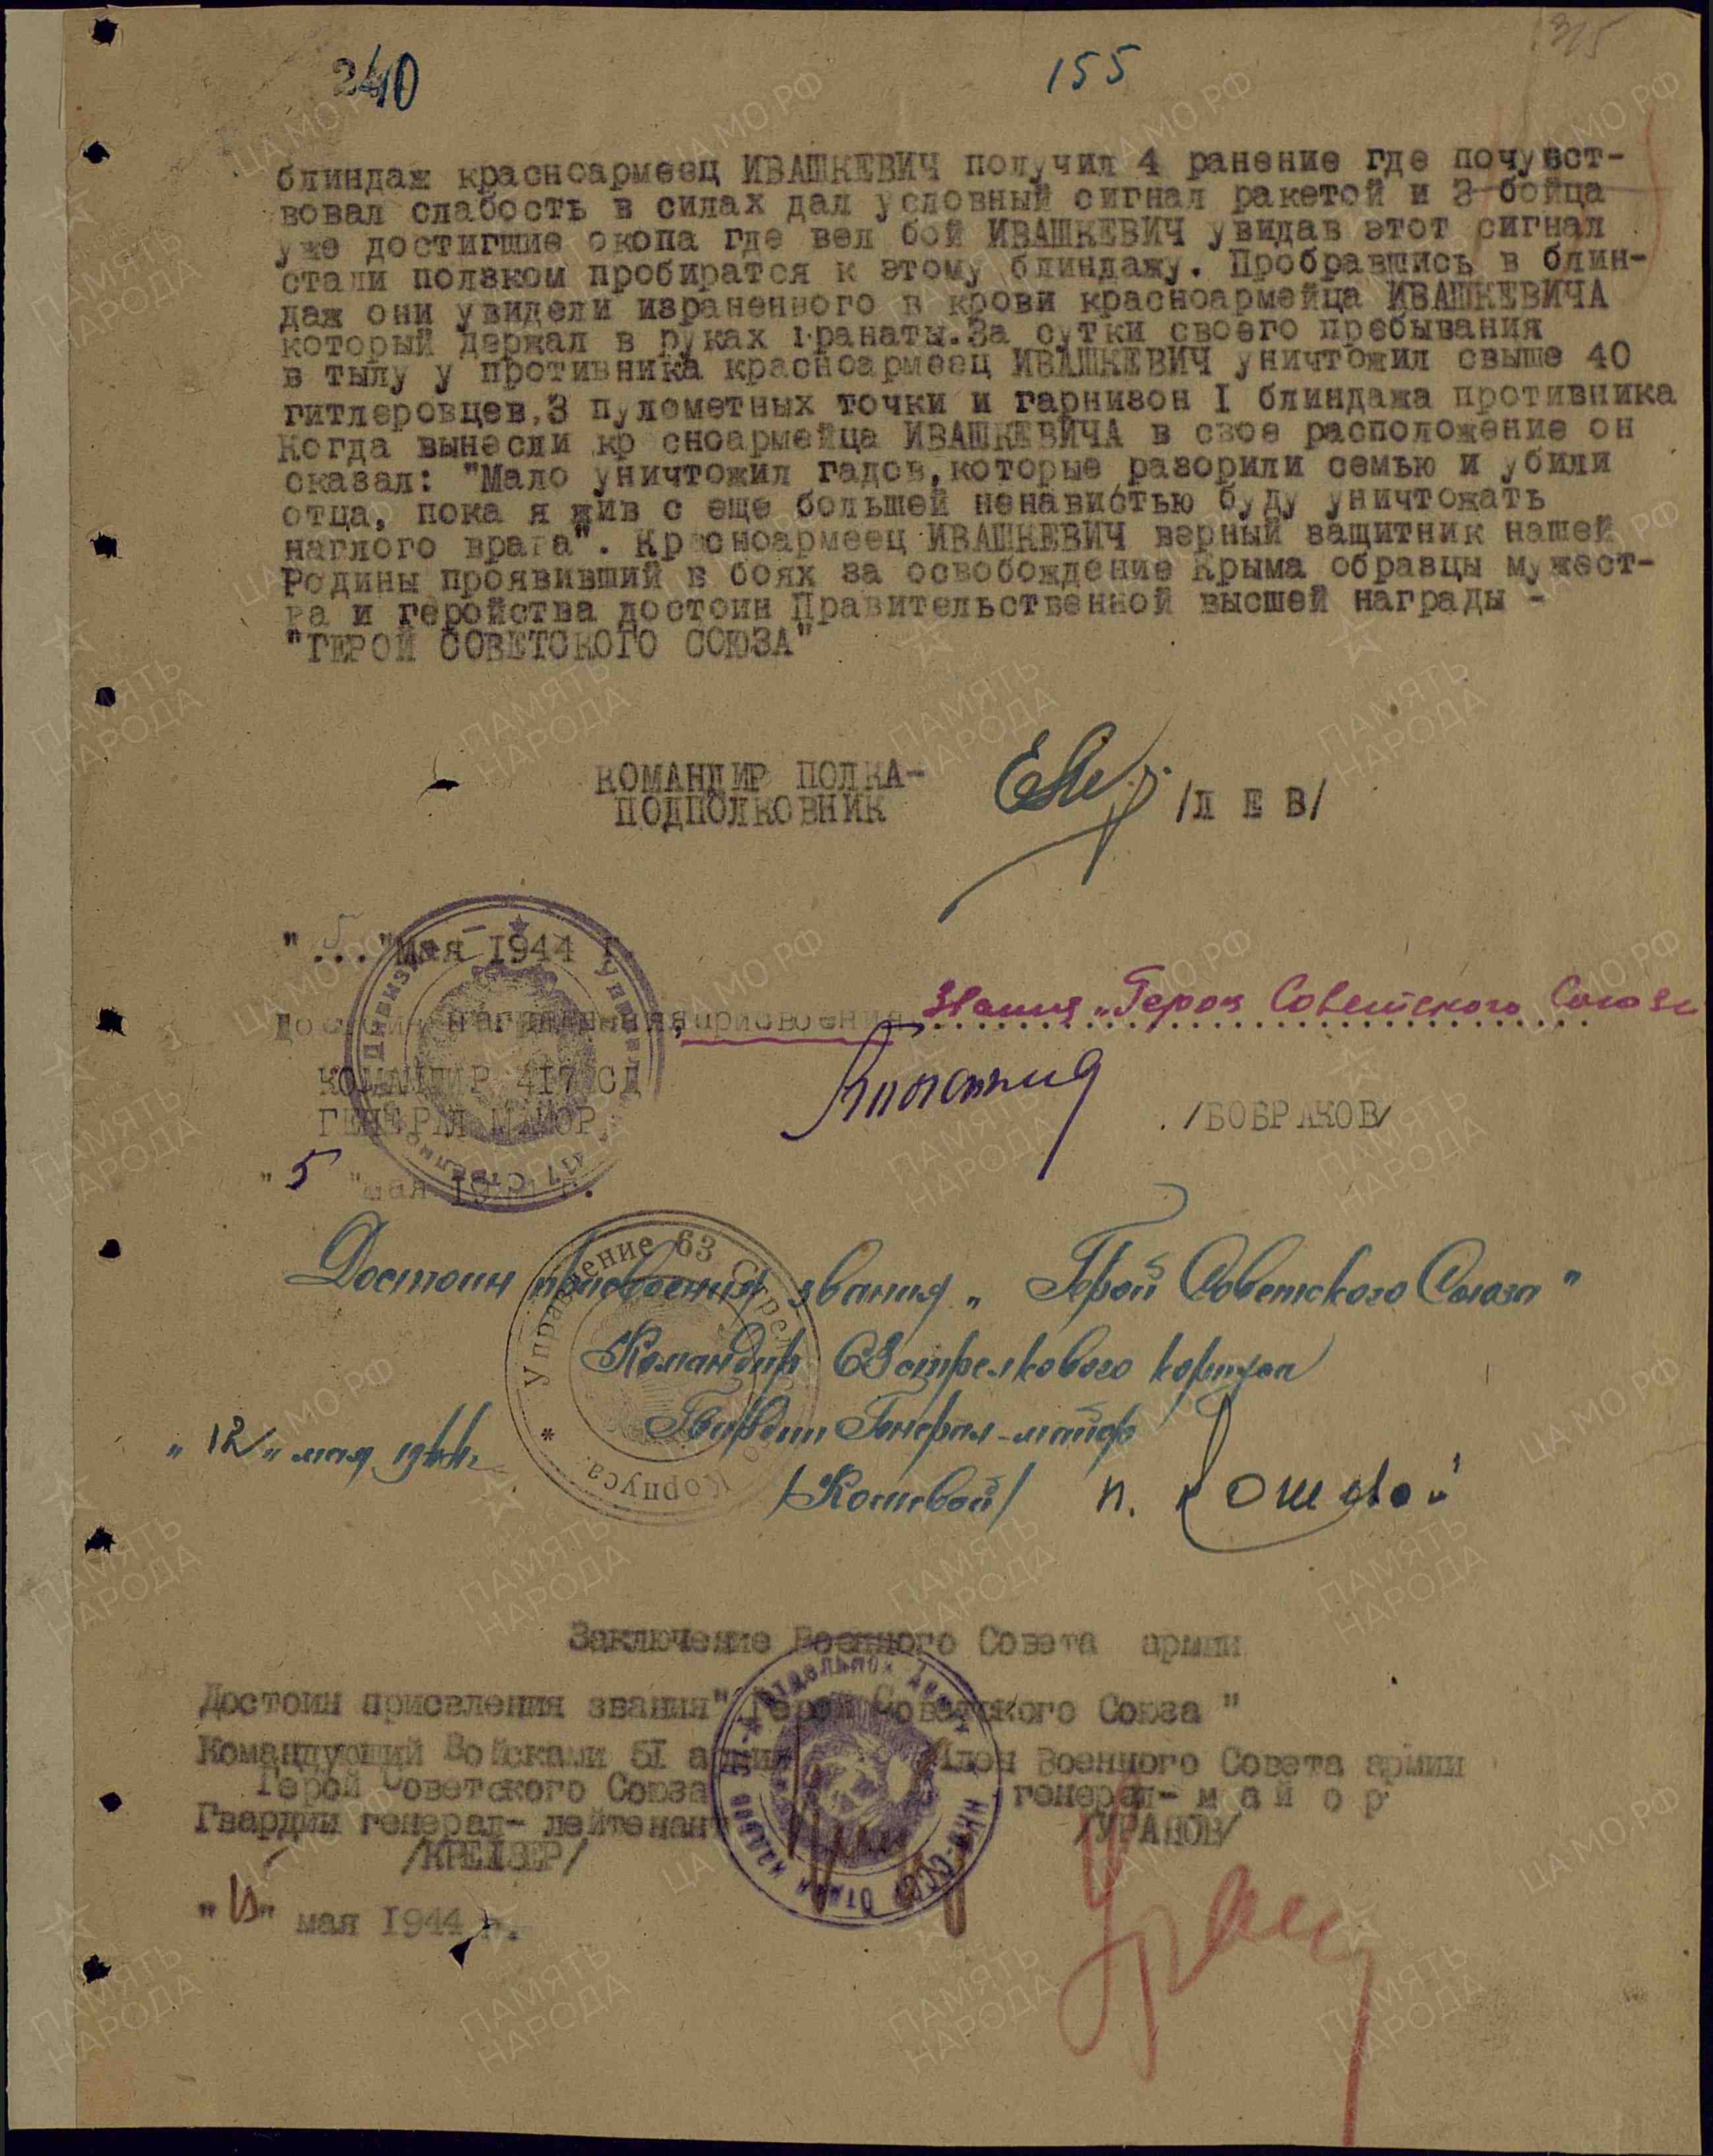 240
155
315
блиндаж красноармеец ИВАШКЕВИЧ получил 4 ранение где почувст-
вовал слабость в силах дал условный сигнал ракетой и 3 бойца
уже достигшие окопа где вел бой ИВАШКЕВИЧ увидав этот сигнал
стали ползком пробиратся к этому блиндажу. Пробравшись в блин-
даж они увидели израненного в крови красноармейца ИВАШКЕВИЧА
который держал в руках гранаты. За сутки своего пребывания
в тылу у противника красноармеец ИВАШКЕВИЧ уничтожил свыше 40
гитлеровцев, 3 пулеметных точки и гарнизон I блиндажа противника
Когда вынесли кр сноармейца ИВАШКЕВИЧА в свое расположение он
сказал: "Мало уничтожил гадов, которые разорили семью и убили
отца, пока я жив с еще большей ненавистью буду уничтожать
наглого врага". Красноармеец ИВАШКЕВИЧ верный защитник нашей
Родины проявивший в боях за освобождение Крыма образцы мужест-
ва и геройства достоин Правительственной высшей награды -
"ГЕРОЙ СОВЕТСКОГО СОЮЗА"
КОМАНДИР ПОЛКА-
ПОДПОЛКОВНИК /Л Е В/
"5..."Мая 1944 г.
Достоин награждения, присвоения звания „Героя Советского Союза
КОМАНДИР 417 СД
ГЕНЕРАЛ МАЙОР /БОБРАКОВ/
"5" мая 1944 г.
Достоин присвоения звания „Герой Советского Союза"
Командир 63 стрелкового корпуса
Гвардии Генерал-майор
"12" мая 1944г.
/Кошевой/ П. Кошевой
Управление 63 Стрелкового Корпуса.
Заключение Военного Совета армии
Достоин присвления звания" Герой Советского Союза "
Командующий Войсками 51 армии Член Военного Совета армии
Герой Советского Союза генерал- м а й о р
Гвардии генерал- лейтенант /УРАНОВ/
/КРЕЙЗЕР/
"15" мая 1944 г.
ПАМЯТЬ НАРОДА
ЦАМО.РФ